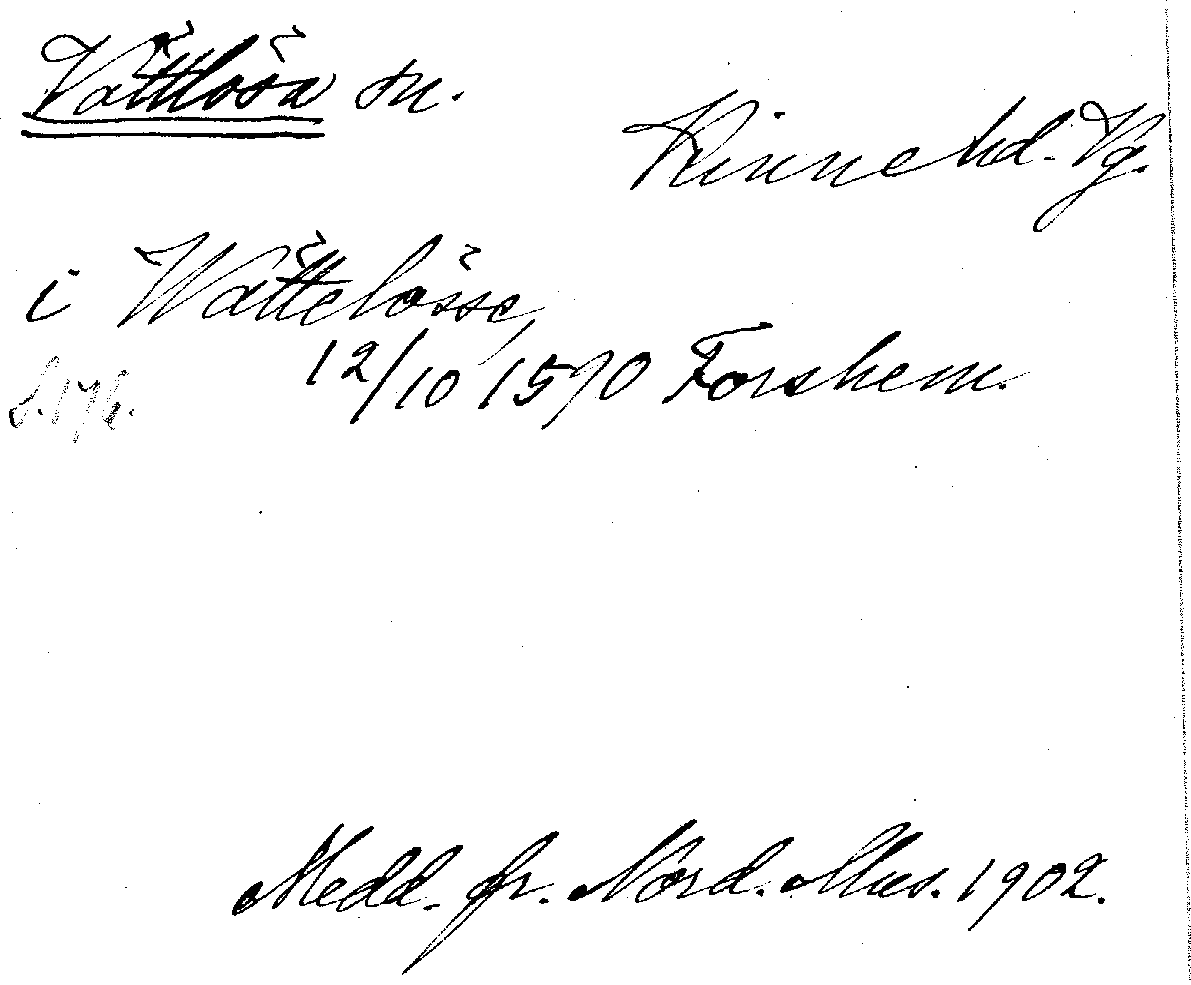 Vättlösa sn.
Kinne hd. Vg.
i Wättelösse,
12/10 1570 Forshem.
s. 176.
Medd. fr. Nord. Mus. 1902.